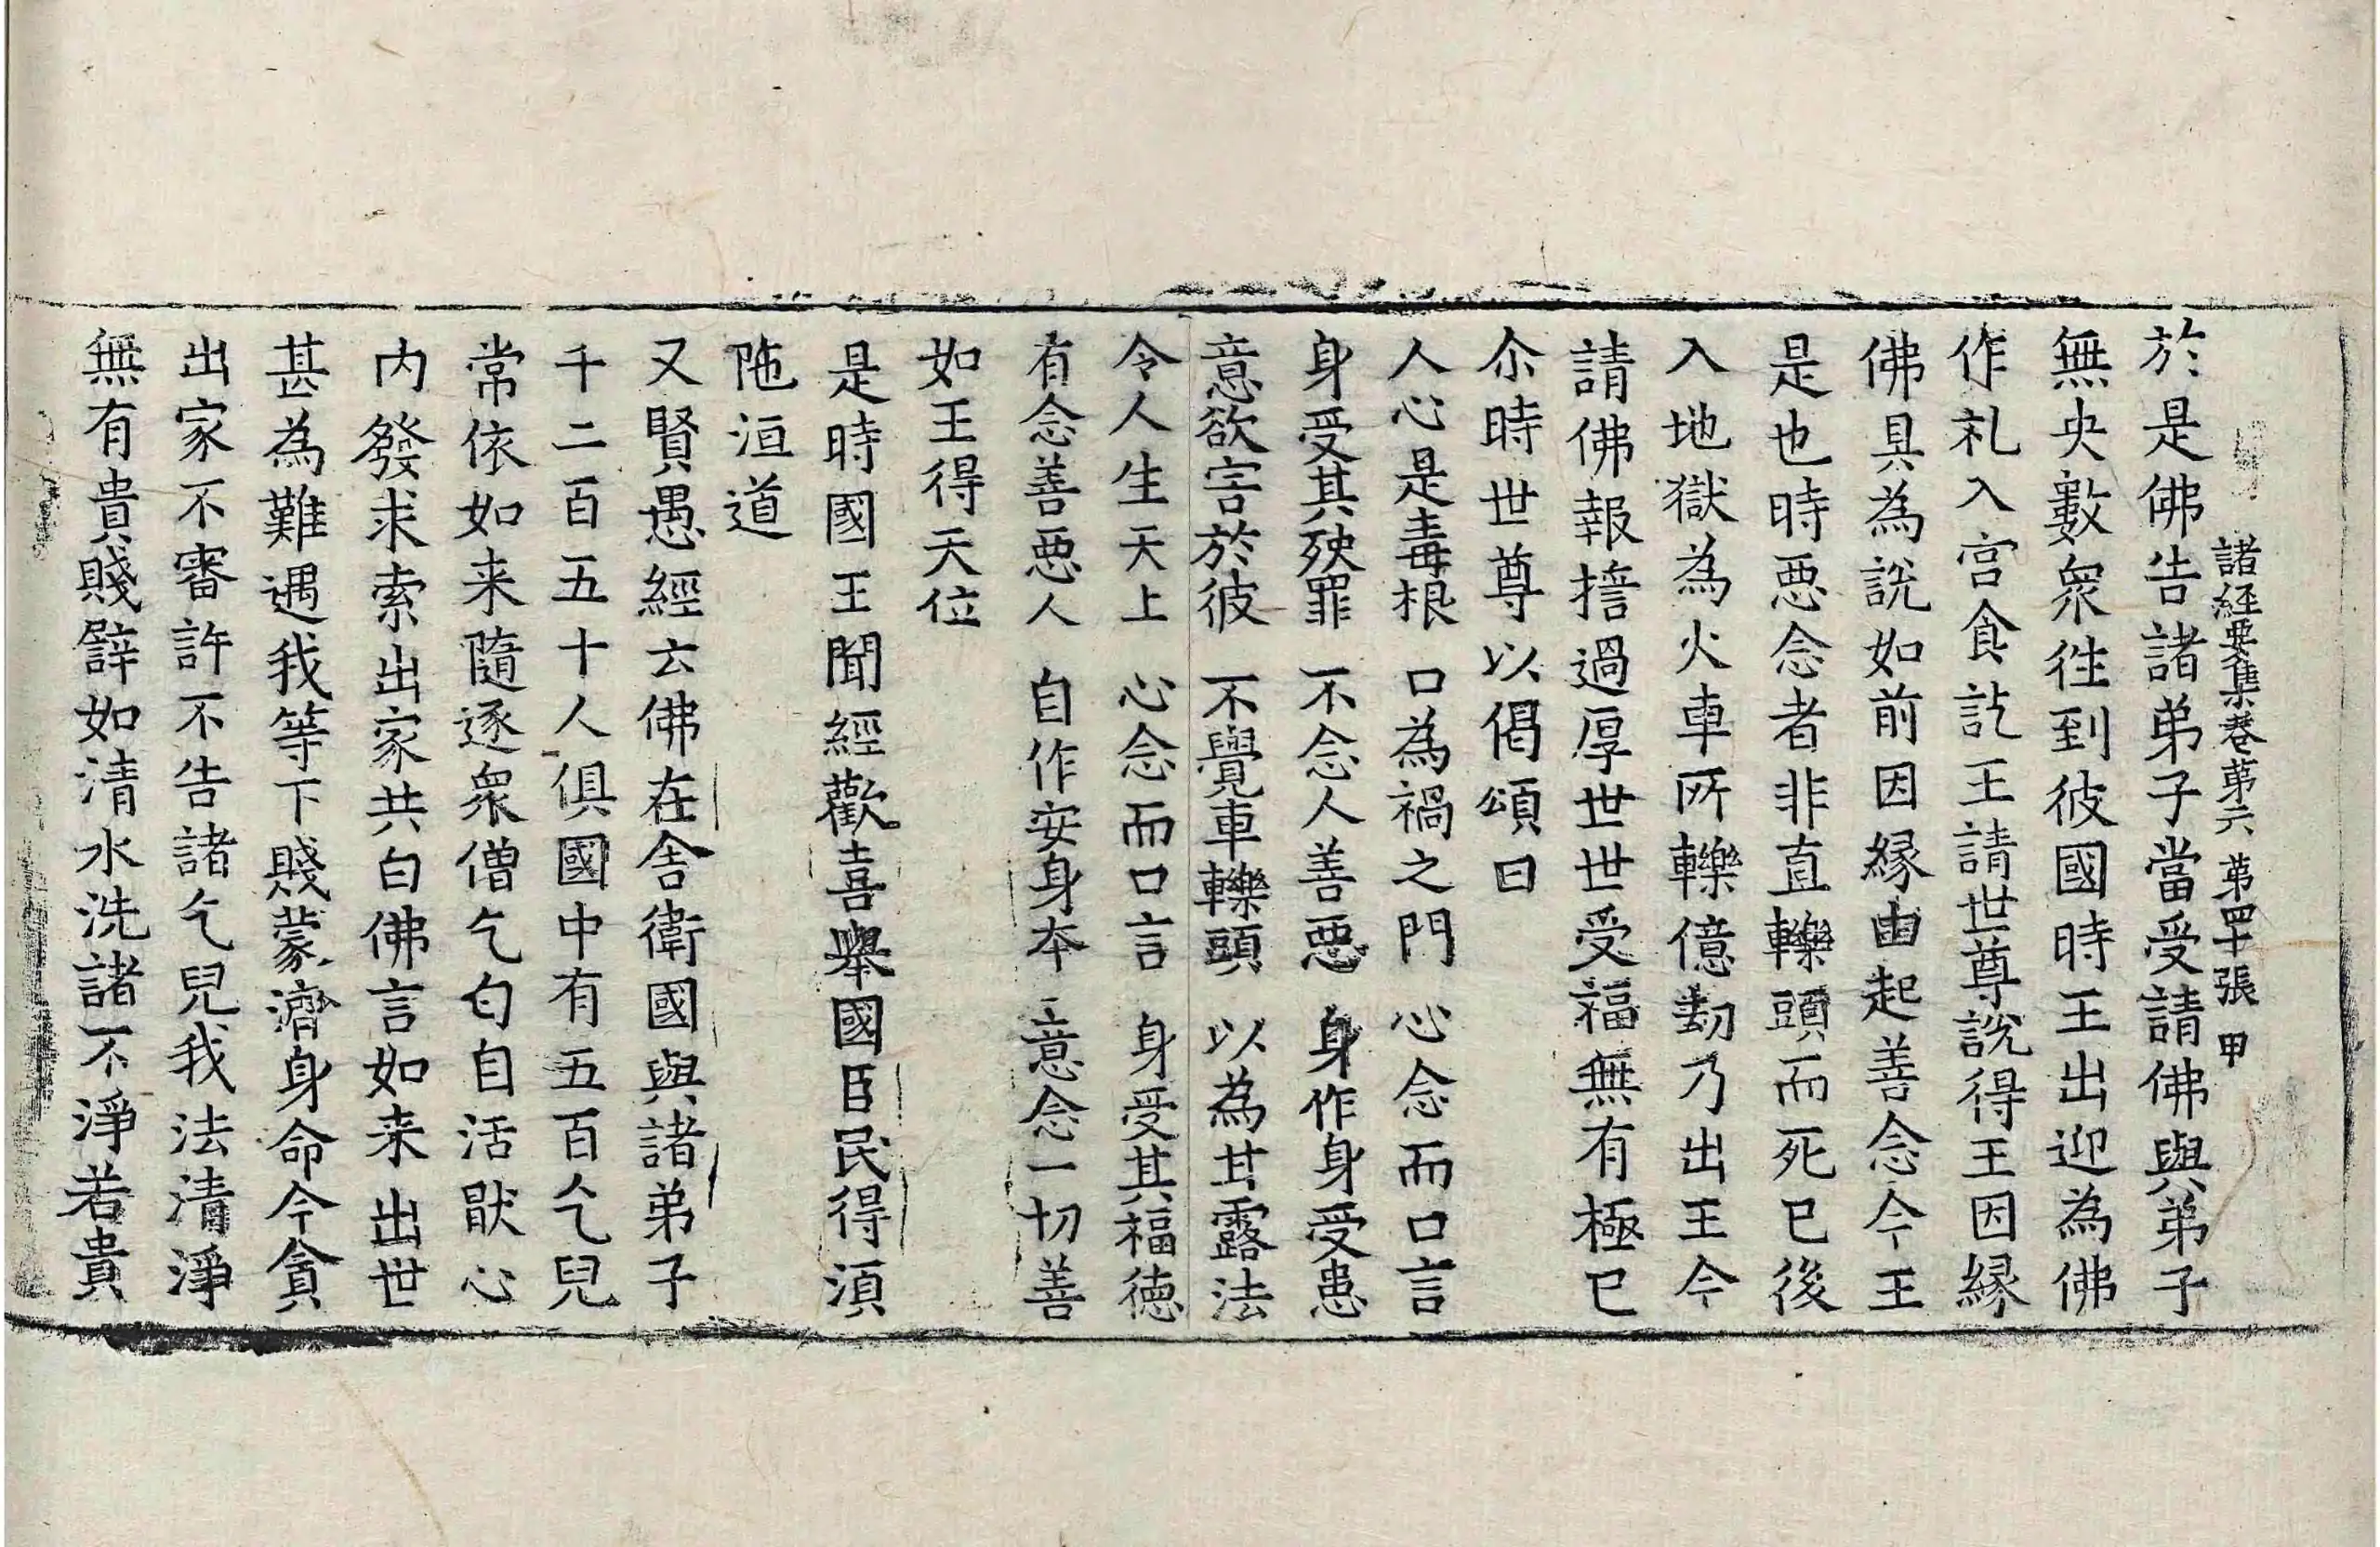 諸經要集卷第六 第四十張 甲
於是佛告諸弟子當受請佛與弟子
無央數衆徃到彼國時王出迎為佛
作礼入宫食訖王請世尊說得王因縁
佛具為說如前因縁由起善念今王
是也時惡念者非直轢頭而死已後
入地獄為火車所轢億劫乃出王今
請佛報擔過厚世世受福無有極已
尒時世尊以偈頌曰
人心是毒根 口為禍之門 心念而口言
身受其殃罪 不念人善惡 身作身受患
意欲害於彼 不覺車轢頭 以為甘露法
令人生天上 心念而口言 身受其福德
有念善惡人 自作安身本 意念一切善
如王得天位
是時國王聞經歡喜舉國臣民得須
陁洹道
又賢愚經云佛在舍衛國與諸弟子
千二百五十人俱國中有五百乞兒
常依如来隨逐衆僧乞匂自活猒心
内發求索出家共白佛言如来出世
甚為難遇我等下賤蒙濟身命今貪
出家不審許不告諸乞兒我法清淨
無有貴賤辟如清水洗諸不淨若貴